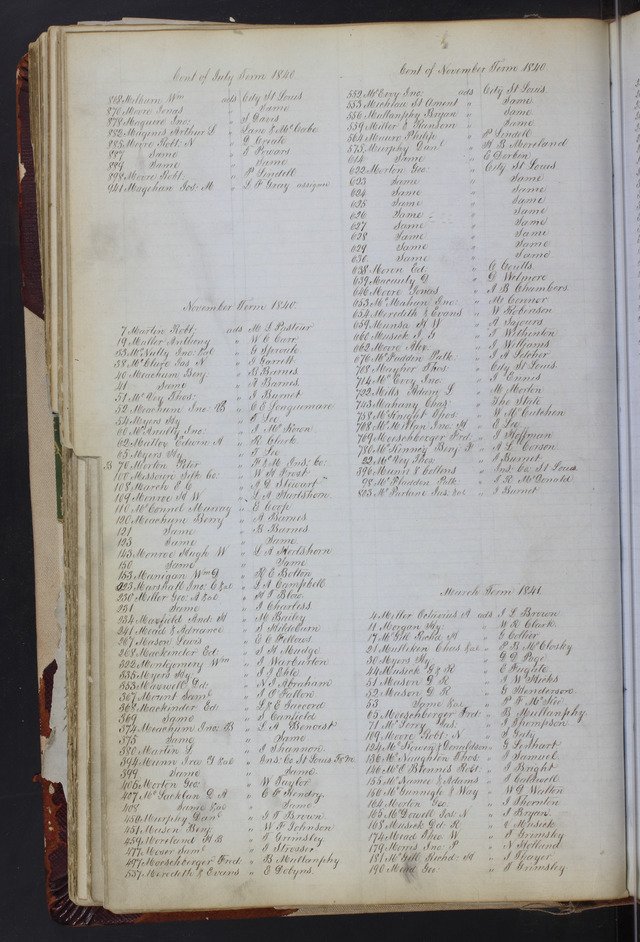 Cont of July Term 1840
868 Milburn Wm ads City St Louis
870 Moore James " Same
878 Maguire Jno: " J Davis
882 Maginis Arthur L " Lane & McCabe
885 Moore Robt N "
887 Same " E Powers
889 Same " Same
898 Moore Robt: " P Lindell
941 Magehan Jos: M " L F Gray assignee
November Term 1840
7 Martin Robt: ads M L Pasteur
19 Miller Anthony " W C Carr
33 McNulty Jno: &al " G Sproule
38 McClure Jas N " J Garrett
40 Meachum Berry " B Barnes
41 Same " A Barnes
51 McVoy Thos: " J Burnet
52 Meachum Jno: B " E E
54 Myers Hy " E Lee
56 McAnully Jno: " J McKeon
62 Malloy Edwin A " R Clark
65 Myers Hy " T Lee
B 76 Morton Peter " F & M Ins: Co:
100 Missouri Silk Co: " W H Frost
108 March E C " A G Stewart
109 Monroe H W " L A Hartshorn
110 McConnel Murray " E Coop
120 Meachum Berry " A Barnes
121 Same " B Barnes
123 Same " Same
143 Monroe Hugh W " L A Hartshorn
150 Same " Same
153 Manigan Wm G " R E Bolton
223 Marshall Jno: C &al " L A Campbell
230 Miller Geo: A &al " H T Blow
231 Same " J Charless
234 Maxfield And: H " M Bailey
241 Mead & Adriance " S Hildeburn
267 Mason Lewis " E C Fellows
268 Mackinder Ed: " S H Mudge
322 Montgomery Wm " J Warburton
335 Myers Hy " J J Ehle
353 Maxwell Ed: " N J Abraham
367 Mount Saml " J O Fallon
368 Mackinder Ed: " L & E Saccord
369 Same " S Canfield
374 Meachum Jno: B " L A Benoist
375 Same " Same
380 Martin L " J Shannon
394 Munn Ira: Y &al " Ins: Co St Louis
399 Same " Same
405 Morton Geo: " W Taylor
407 McLacklan D A " C W Hendry
408 Same &al " Same
450 Murphy Danl " J T Brown
451 Meison Benj: " W F Johnson
459 Moreland H B " T Grimsley
477 Moser Saml " J Strosier
497 Morschberger Fred: " B Mullanphy
537 Meredith & Evans " E Dobyns
Cont of November Term 1840
552 McEvoy Jno: ads City St Louis
553 Michlaw St Ament " Same
556 Mullanphy Bryan " Same
559 Miller & Ransom " Same
564 Munro Philip " P Lindell
573 Murphy Danl " H B Moreland
614 Same " E Dorbon
622 Morton Geo: " City St Louis
623 Same " Same
624 Same " Same
625 Same " Same
626 Same " Same
627 Same " Same
628 Same " Same
629 Same " Same
630 Same " Same
638 Menn Ed: " C Coutts
639 Macauly D " D Wetmore
646 Moore James " A B Chambers
653 McMahan Jno: " M Connor
654 Meredith & Evans " W Robinson
659 Munsa H W " A Sapours
660 Musick J G " J Withinton
662 Moore Alex: " J Williams
670 McFadden Patk: " J H Letcher
708 Maugher Thos: " City St Louis
714 McEvoy Jno: " J Ennis
722 Mills Adam L " M Morton
743 Mahany Chas: " The State
758 McKnight Thos: " W McCutchen
708 McMillan Jno: H " E Lee
769 Morschberger Fred: " J Hoffman
780 McKinney Benj: F " A L Corson
22 McVoy Thos " J Burnet
396 Munn & Collens " Ins: Co St Louis
98 McFladden Patk: " J R McDonald
803 McParlane Jas: &al " J Burnet
March Term 1841.
4 Miller Octavius A ads J L Brown
11 Morgan Hy: " W R Clark
17 McGill Richd H " E Collier
21 Mulliken Chas &al " P B McClosky
30 Myers Hy " G G Page
44 Musick G & R " E Fugate
51 Mason G R " E W Micks
52 Mason G R " G Henderson
53 Same &al " P F McKee
65 Morschberger Fred: " B Mullanphy
71 McLeroy Jas: " J Thompson
109 Moore Robt: N " J Galy
124 McHower & Donaldson " G Lenhart
136 McNaughton Thos: " J Samuel
146 McC Blennis Robt: " J Bright
155 McNamee & Adams " J Caldwell
160 McGunnigle & Way " W G Walton
164 Morton Geo: " J Thornton
165 McDowell Jas: N " J Bryan
168 Musick Ed: R " E Musick
174 Mead Theo H " T Grimsley
179 Morris Jno: P " N Holland
181 McGill Richd: H " J Thayer
190 Mead Geo " T Grimsley